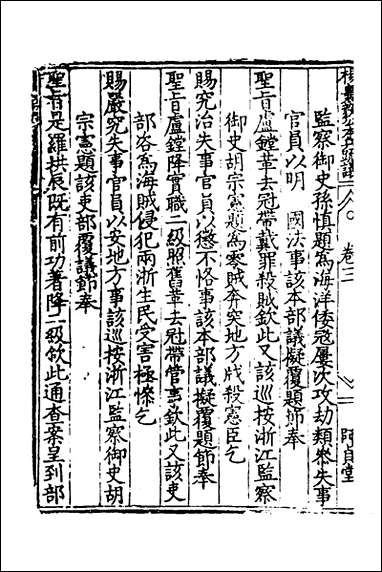 楊襄毅公本兵疏議 卷三 師貞堂
監察御史孫慎題為海洋倭寇屢次攻劫類參失事
官員以明 國法事該本部議擬覆題節奉
聖旨盧鏜革去冠帶戴罪殺賊欽此又該巡按浙江監察
御史胡宗憲題為零賊奔突地方戕殺憲臣乞
賜究治失事官員以懲不恪事該本部議擬覆題節奉
聖旨盧鏜降實職二級照舊革去冠帶管事欽此又該吏
部咨為海賊侵犯兩浙生民受害極慘乞
賜嚴究失事官員以安地方事該巡按浙江監察御史胡
宗憲題該吏部覆議節奉
聖旨是羅拱辰既有前功著降二級欽此通查案呈到部